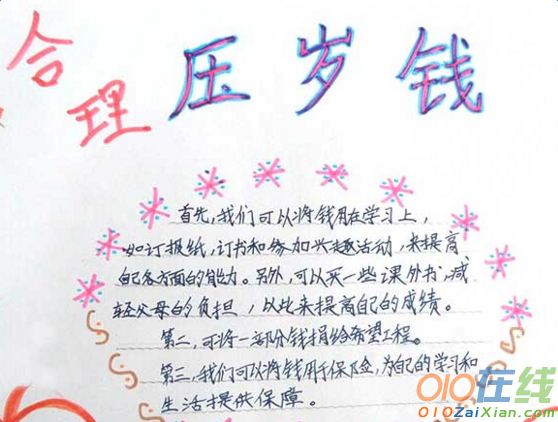 合理
压岁钱
首先,我们可以将钱用在学习上,
如订报纸,订书和参加兴趣活动,来提高
自己各方面的能力。另外,可以买一些课外书,减
轻父母的负担,以此来提高自己的成绩。
第二,可将一部分钱捐给希望工程。
第三,我们可以将钱用于保险,为自己的学习和
生活提供保障。
010在线
010ZaiXian.com